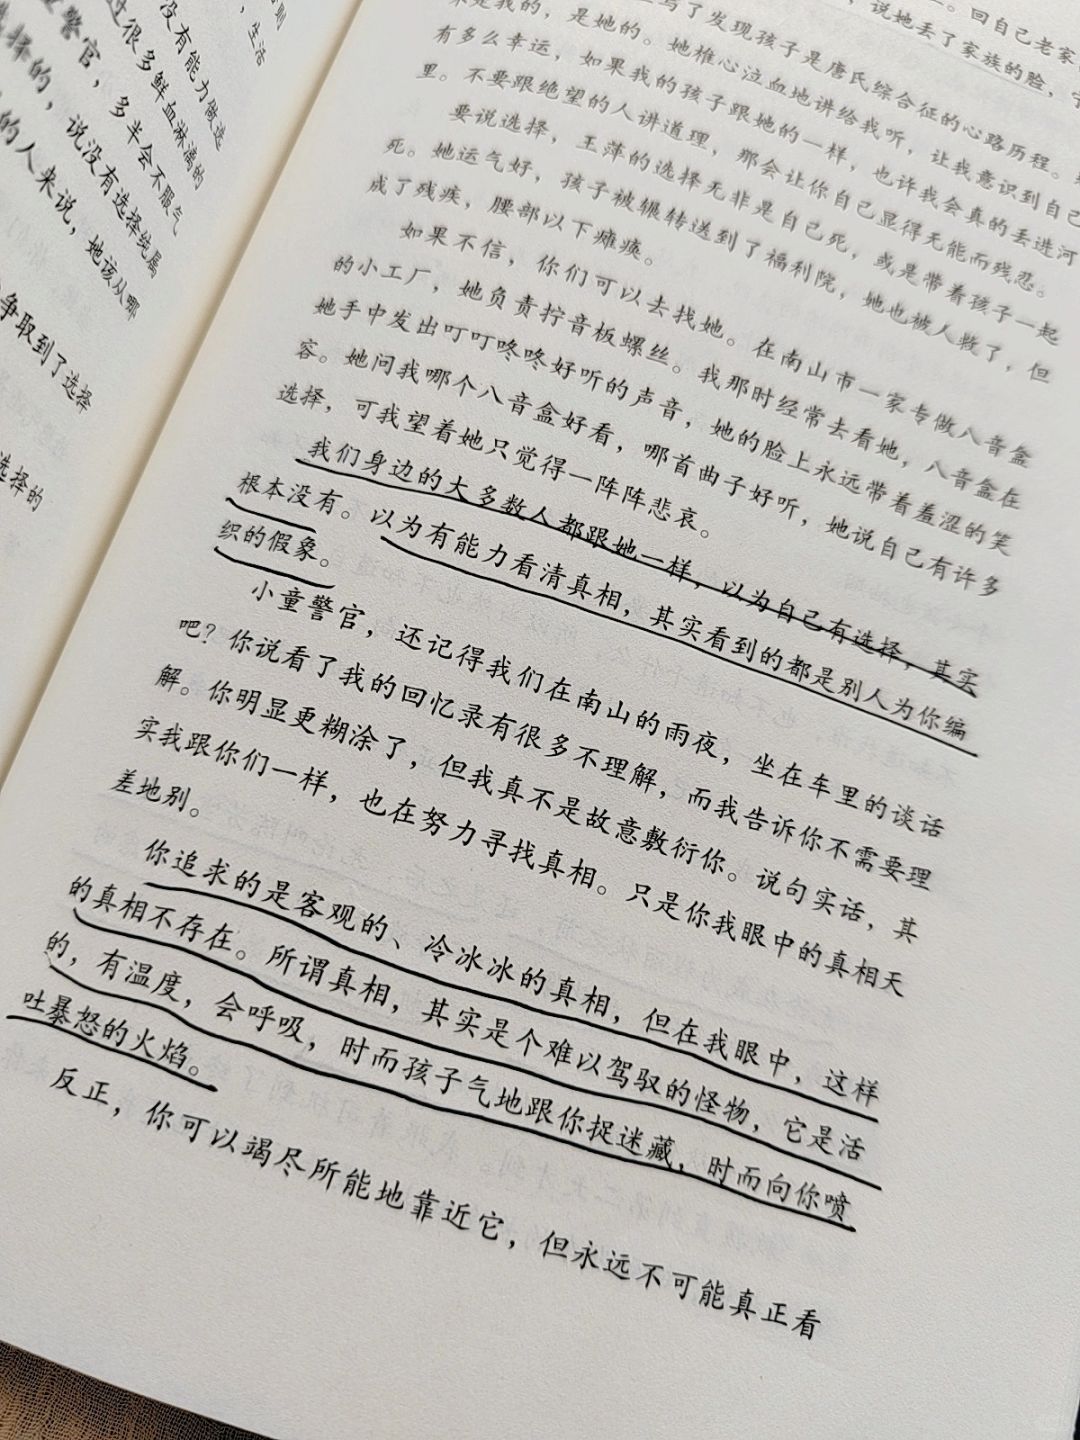 则
，生活
没有能力做选
过很多鲜血淋漓的
警官，多半会不服气
选择的，说没有选择纯属
的人来说，她该从哪
争取到了选择
选择的
。回自己老家
说她丢了家族的脸，宁
写了发现孩子是唐氏综合征的心路历程。
果是我的，是她的。她椎心泣血地讲给我听，让我意识到自己
有多么幸运，如果我的孩子跟她的一样，也许我会真的丢进河
里。不要跟绝望的人讲道理，那会让你自己显得无能而残忍。
要说选择，王萍的选择无非是自己死，或是带着孩子一起
死。她运气好，孩子被辗转送到了福利院，她也被人救了，但
成了残疾，腰部以下瘫痪。
如果不信，你们可以去找她。在南山市一家专做八音盒
的小工厂，她负责拧音板螺丝。我那时经常去看她，八音盒在
她手中发出叮叮咚咚好听的声音，她的脸上永远带着羞涩的笑
容。她问我哪个八音盒好看，哪首曲子好听，她说自己有许多
选择，可我望着她只觉得一阵阵悲哀。
我们身边的大多数人都跟她一样，以为自己有选择，其实
根本没有。以为有能力看清真相，其实看到的都是别人为你编
织的假象。
小童警官，还记得我们在南山的雨夜，坐在车里的谈话
吧？你说看了我的回忆录有很多不理解，而我告诉你不需要理
解。你明显更糊涂了，但我真不是故意敷衍你。说句实话，其
实我跟你们一样，也在努力寻找真相。只是你我眼中的真相天
差地别。
你追求的是客观的、冷冰冰的真相，但在我眼中，这样
的真相不存在。所谓真相，其实是个难以驾驭的怪物，它是活
的，有温度，会呼吸，时而孩子气地跟你捉迷藏，时而向你喷
吐暴怒的火焰。
反正，你可以竭尽所能地靠近它，但永远不可能真正看